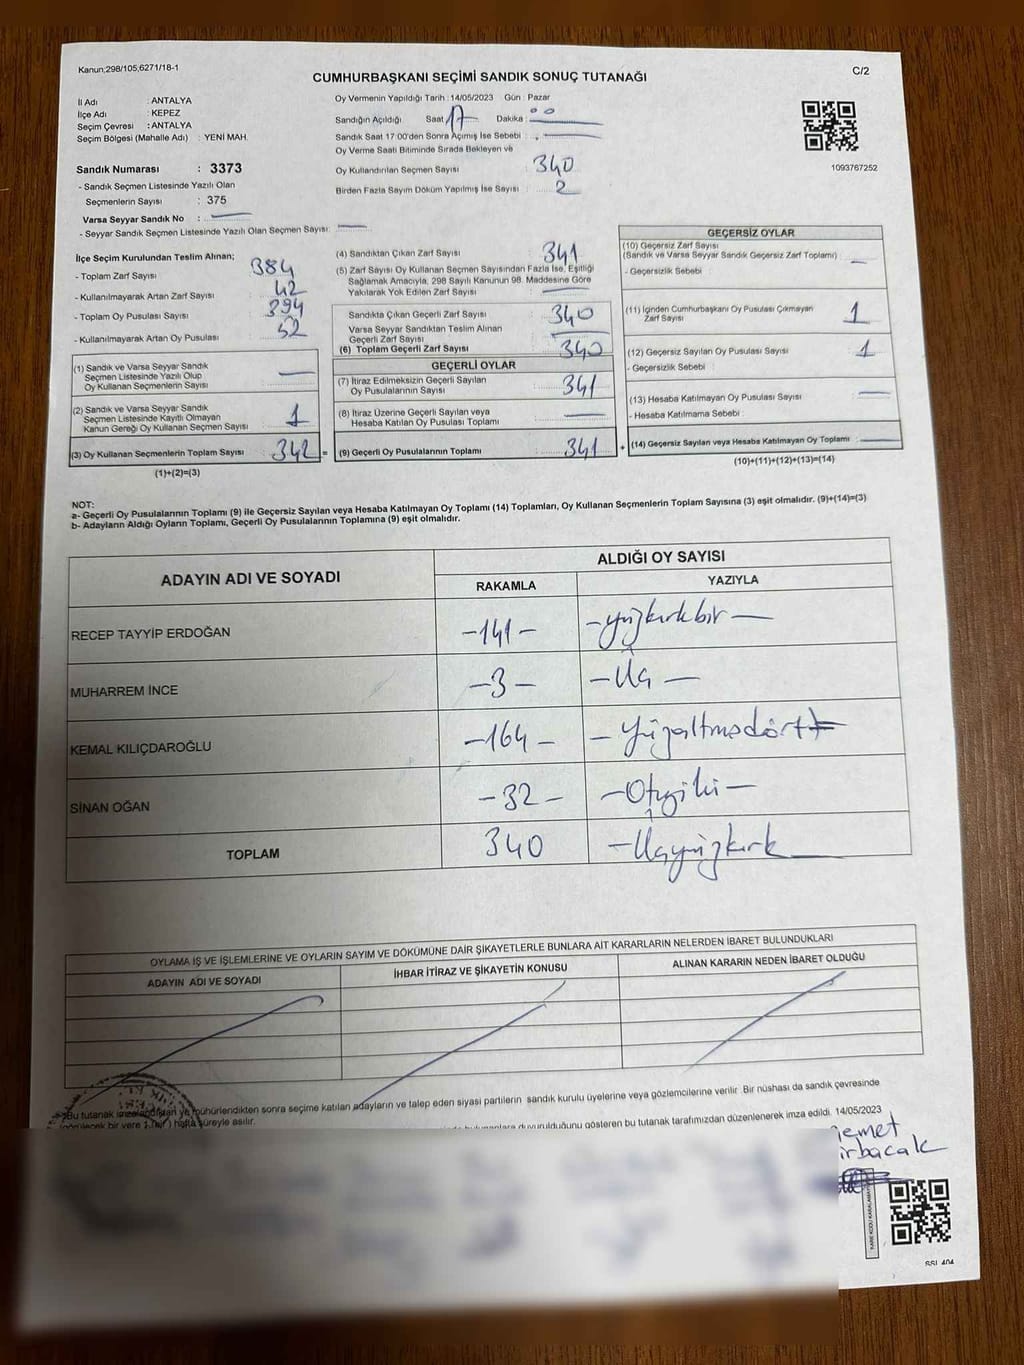 Kanun;298/105,6271/18-1
C/2
CUMHURBAŞKANI SEÇİMİ SANDIK SONUÇ TUTANAĞI
İl Adı : ANTALYA
İlçe Adı : KEPEZ
Seçim Çevresi : ANTALYA
Seçim Bölgesi (Mahalle Adı) : YENİ MAH.
Sandık Numarası : 3373
- Sandık Seçmen Listesinde Yazılı Olan
Seçmenlerin Sayısı : 375
Varsa Seyyar Sandık No :
- Seyyar Sandık Seçmen Listesinde Yazılı Olan Seçmen Sayısı:
Oy Vermenin Yapıldığı Tarih : 14/05/2023 Gün : Pazar
Sandığın Açıldığı Saat 17 Dakika : 00
Sandık Saat 17:00'den Sonra Açımış İse Sebebi :
Oy Verme Saati Bitiminde Sırada Bekleyen ve
Oy Kullandırılan Seçmen Sayısı : 340
Birden Fazla Sayım Döküm Yapılmış İse Sayısı : 2
1093767252
İlçe Seçim Kurulundan Teslim Alınan;
- Toplam Zarf Sayısı : 384
- Kullanılmayarak Artan Zarf Sayısı : 42
- Toplam Oy Pusulası Sayısı : 394
- Kullanılmayarak Artan Oy Pusulası : 52
(1) Sandık ve Varsa Seyyar Sandık
Seçmen Listesinde Yazılı Olup
Oy Kullanan Seçmenlerin Sayısı :
(2) Sandık ve Varsa Seyyar Sandık
Seçmen Listesinde Kayıtlı Olmayan
Kanun Gereği Oy Kullanan Seçmen Sayısı : 1
(3) Oy Kullanan Seçmenlerin Toplam Sayısı : 342 =
(1)+(2)=(3)
(4) Sandıktan Çıkan Zarf Sayısı : 341
(5) Zarf Sayısı Oy Kullanan Seçmen Sayısından Fazla İse, Eşitliği
Sağlamak Amacıyla, 298 Sayılı Kanunun 98. Maddesine Göre
Yakılarak Yok Edilen Zarf Sayısı :
Sandıkta Çıkan Geçerli Zarf Sayısı : 340
Varsa Seyyar Sandıktan Teslim Alınan
Geçerli Zarf Sayısı :
(6) Toplam Geçerli Zarf Sayısı : 340
GEÇERLİ OYLAR
(7) İtiraz Edilmeksizin Geçerli Sayılan
Oy Pusulalarının Sayısı : 341
(8) İtiraz Üzerine Geçerli Sayılan veya
Hesaba Katılan Oy Pusulası Toplamı :
(9) Geçerli Oy Pusulalarının Toplamı : 341 +
GEÇERSİZ OYLAR
(10) Geçersiz Zarf Sayısı
(Sandık ve Varsa Seyyar Sandık Geçersiz Zarf Toplamı) :
- Geçersizlik Sebebi :
(11) İçinden Cumhurbaşkanı Oy Pusulası Çıkmayan
Zarf Sayısı : 1
(12) Geçersiz Sayılan Oy Pusulası Sayısı : 1
- Geçersizlik Sebebi :
(13) Hesaba Katılmayan Oy Pusulası Sayısı :
- Hesaba Katılmama Sebebi :
(14) Geçersiz Sayılan veya Hesaba Katılmayan Oy Toplamı :
(10)+(11)+(12)+(13)=(14)
NOT:
a- Geçerli Oy Pusulalarının Toplamı (9) ile Geçersiz Sayılan veya Hesaba Katılmayan Oy Toplamı (14) Toplamları, Oy Kullanan Seçmenlerin Toplam Sayısına (3) eşit olmalıdır. (9)+(14)=(3)
b- Adayların Aldığı Oyların Toplamı, Geçerli Oy Pusulalarının Toplamına (9) eşit olmalıdır.
ADAYIN ADI VE SOYADI
ALDIĞI OY SAYISI
RAKAMLA YAZIYLA
RECEP TAYYİP ERDOĞAN -141- -yüzkırkbir-
MUHARREM İNCE -3- -Üç-
KEMAL KILIÇDAROĞLU -164- -yüzaltmışdört
SİNAN OĞAN -32- -Otuziki-
TOPLAM 340 -Üçyüzkırk
OYLAMA İŞ VE İŞLEMLERİNE VE OYLARIN SAYIM VE DÖKÜMÜNE DAİR ŞİKAYETLERLE BUNLARA AİT KARARLARIN NELERDEN İBARET BULUNDUKLARI
ADAYIN ADI VE SOYADI İHBAR İTİRAZ VE ŞİKAYETİN KONUSU ALINAN KARARIN NEDEN İBARET OLDUĞU
Bu tutanak imzalandıktan ve mühürlendikten sonra seçime katılan adayların ve talep eden siyasi partilerin sandık kurulu üyelerine veya gözlemcilerine verilir. Bir nüshası da sandık çevresinde
görülecek bir yere 1 hafta süreyle asılır.
duyurulduğunu gösteren bu tutanak tarafımızdan düzenlenerek imza edildi. 14/05/2023